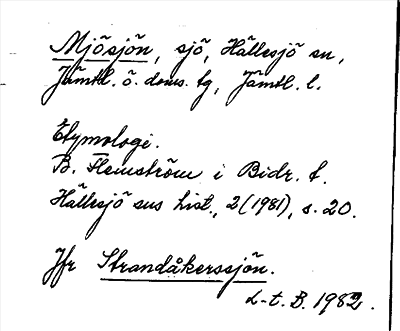 Mjösjön, sjö, Hällesjö sn,
Jämtl. ö. doms. tg, Jämtl. l.
Etymologi.
B. Flemström i Bidr. t.
Hällesjö sns hist., 2 (1981), s. 20.
Jfr Strandåkerssjön.
L-t. B. 1982.